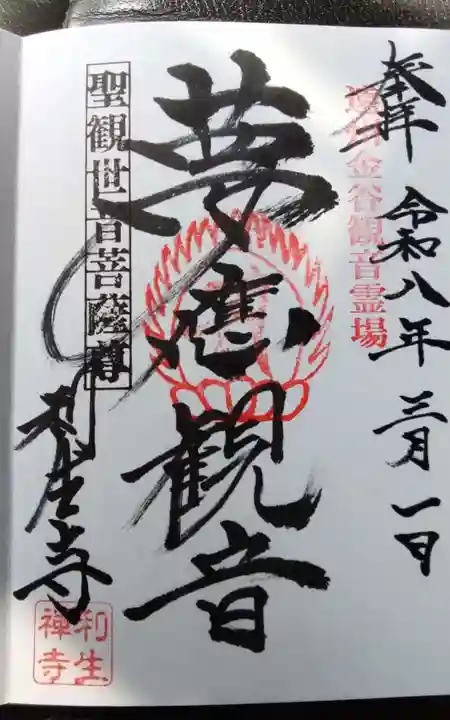 奉拝
令和八年三月一日
遠州金谷観音霊場
夢應観音
聖観世音菩薩尊
利生寺
利生
禅寺